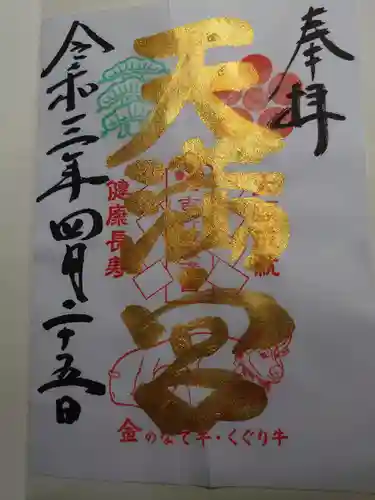 奉拝
天満宮
健康長寿
令和三年四月二十五日
金のなで牛・くぐり牛